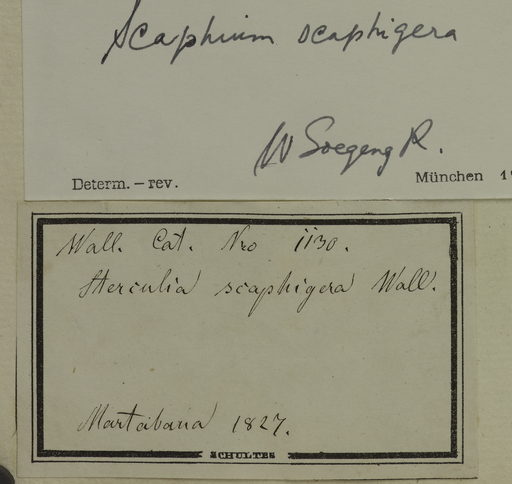 Scaphium scaphigera
W Soegeng R.
Determ. – rev. München 1
Wall. Cat. Nro 1130.
Sterculia scaphigera Wall.
Martabana 1827.
SCHULTES